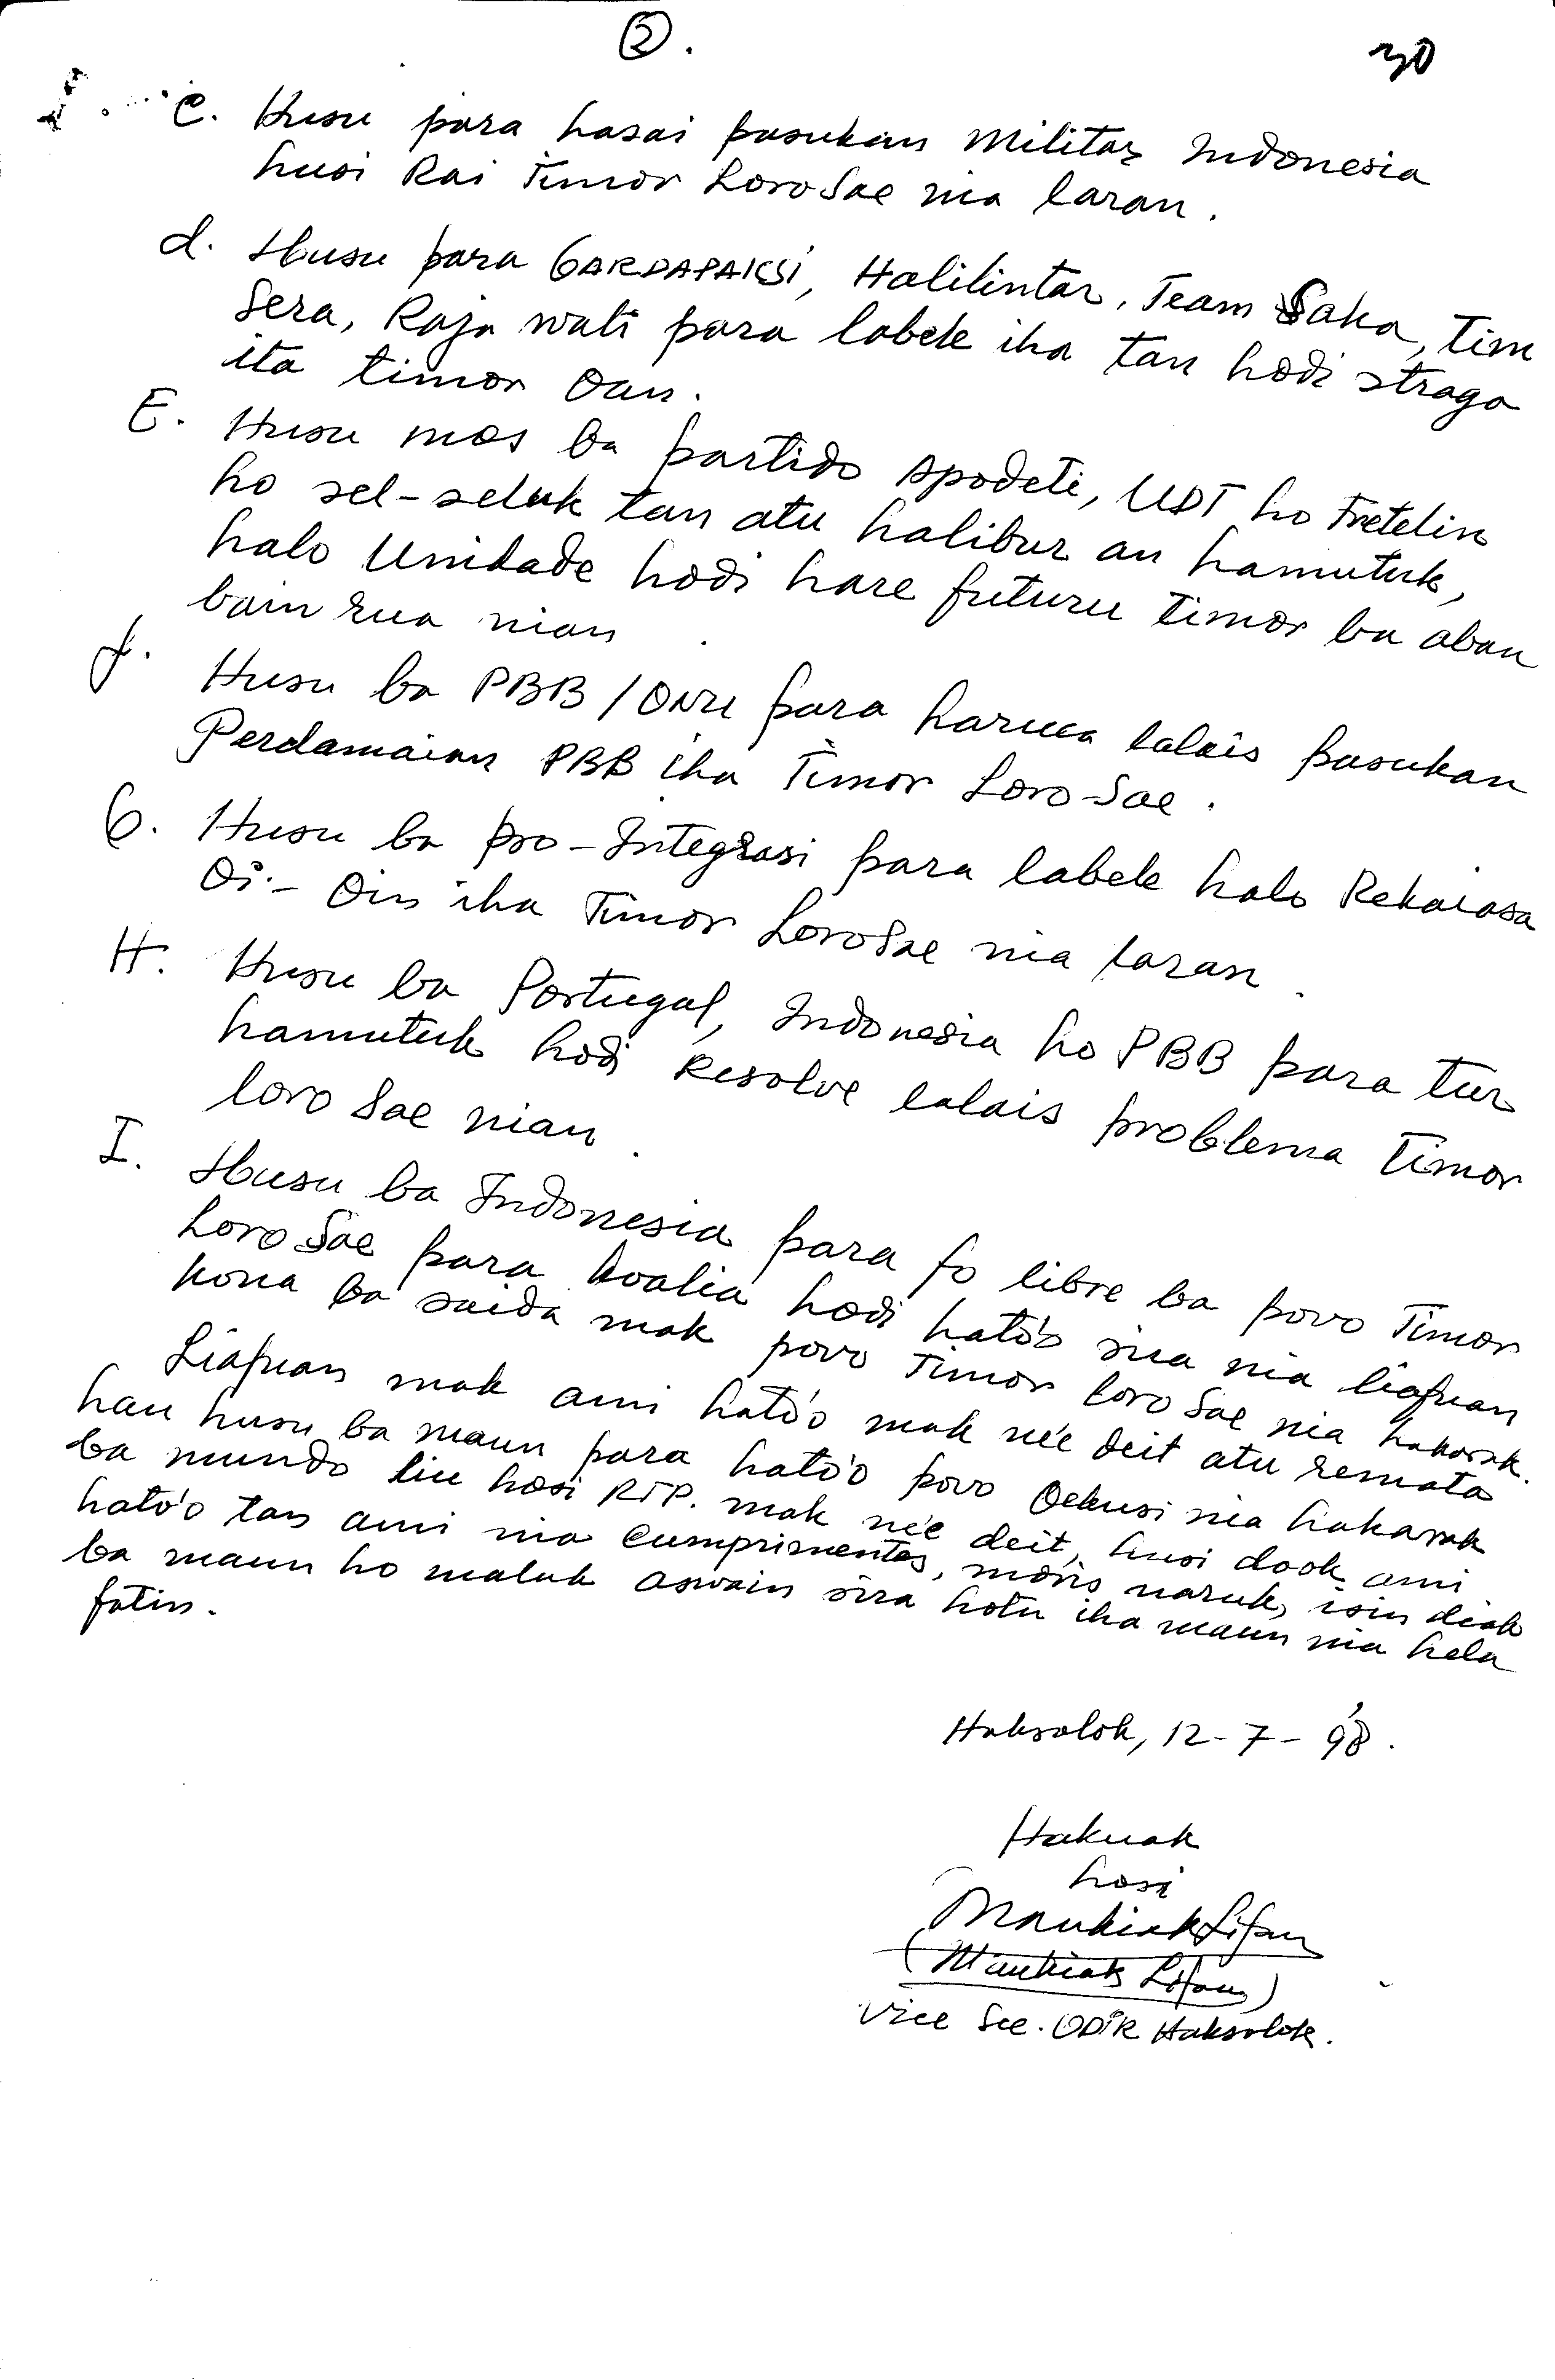 ②.
30
C. Husu para hasai pasukan Militar Indonesia
husi Rai Timor LoroSae nia laran.
d. Husu para GARDAPAKSI, Halilintar, Team Saka, Tim
Sera, Raja wali para labele iha tan hodi strago
ita timor Oan.
E. Husu mos ba partido Apodeti, UDT ho Fretelin
ho sel-seluk tan atu halibur an hamutuk,
halo Unidade hodi hare futuru Timor ba aban
bain rua nian.
f. Husu ba PBB/ONU para haruca lalais pasukan
Perdamaian PBB iha Timor Loro-Sae.
G. Husu ba pro-Integrasi para labele halo Rekaiasa
Oi-Oin iha Timor LoroSae nia laran.
H. Husu ba Portugal, Indonesia ho PBB para tur
hamutuk hodi Resolve lalais problema Timor
loro Sae nian.
I. Husu ba Indonesia para fo libre ba povo Timor
Loro Sae para koalia hodi hato'o sira nia liafuan
kona ba saida mak povo Timor loro Sae nia hakarak.
Liafuan mak ami hato'o mak ne'e deit atu remata
hau husu ba maun para hato'o povo Oekusi nia hakarak
ba mundo liu hosi RTP. mak ne'e deit, husi dook ami
hato'o tan ami nia cumprimentos, moris naruk, isin diak
ba maun ho maluk aswain sira hotu iha maun nia hela
fatin.
Haksolok, 12-7-'98.
Hakuak
hosi
Maukiak Lifau
(Maukiak Lifau)
Vice Sec. ODIR Haksolok.